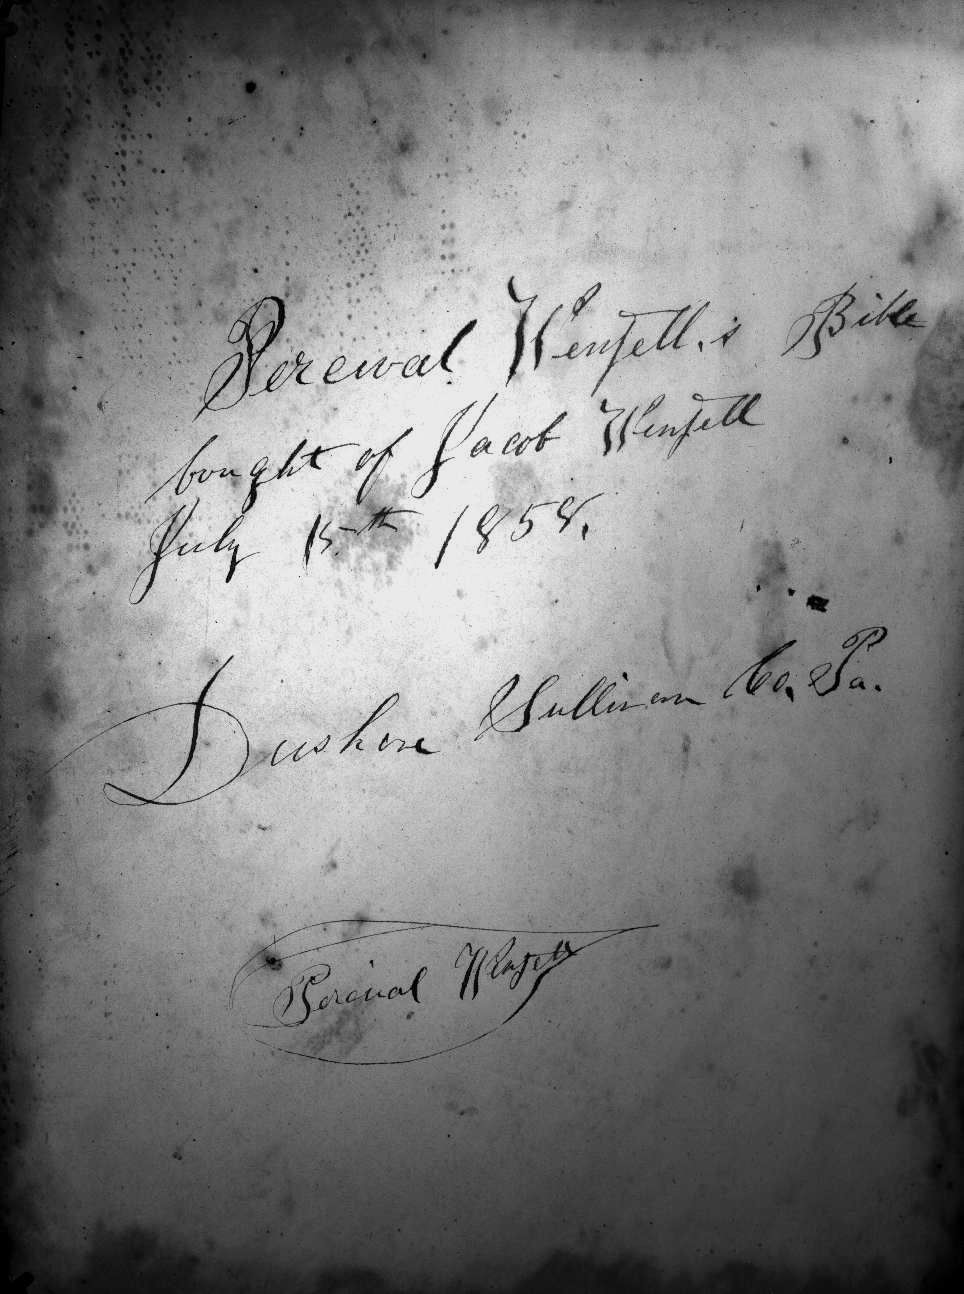 Perceval Wentzell.s Bible
bought of Jacob Wentzell
July 15th 1858.
Dushore Sullivan Co. Pa.
Percival Wentzell